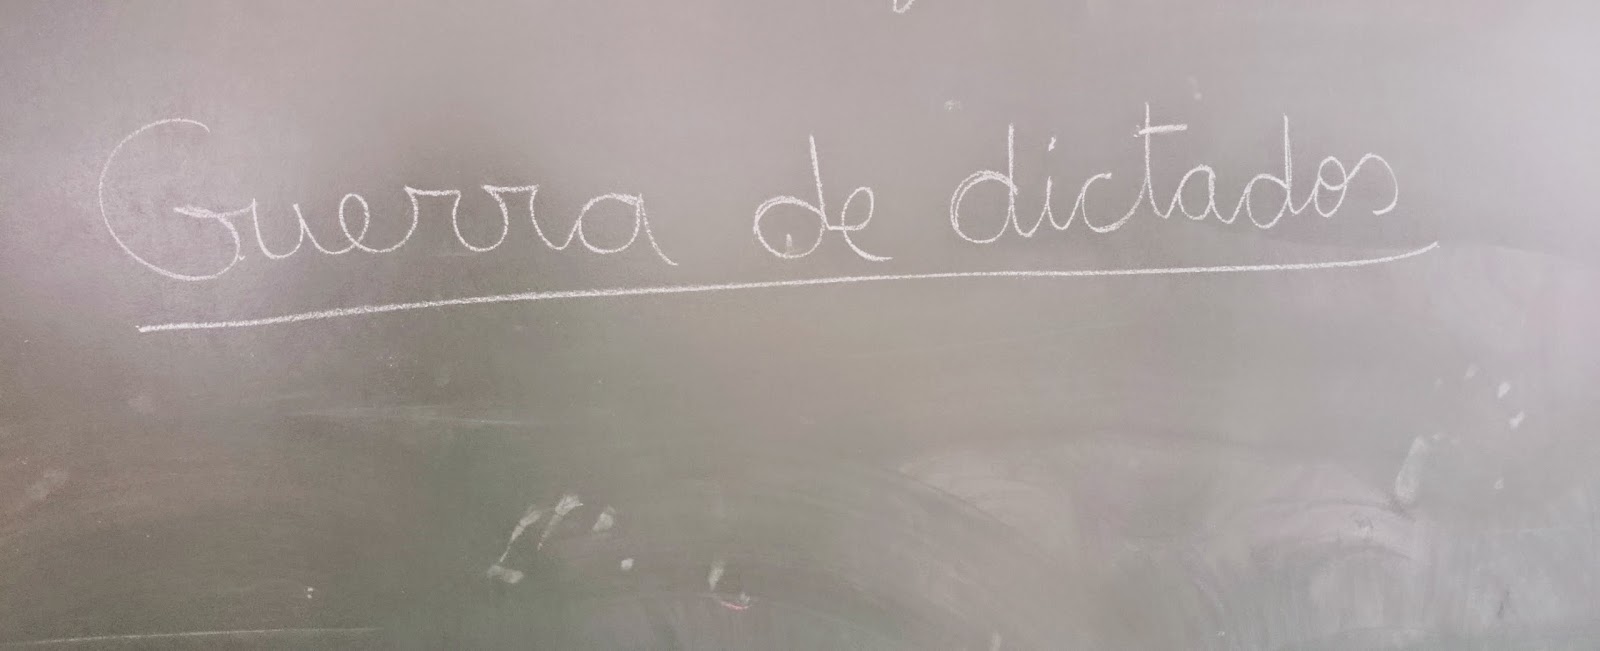 Guerra de dictados